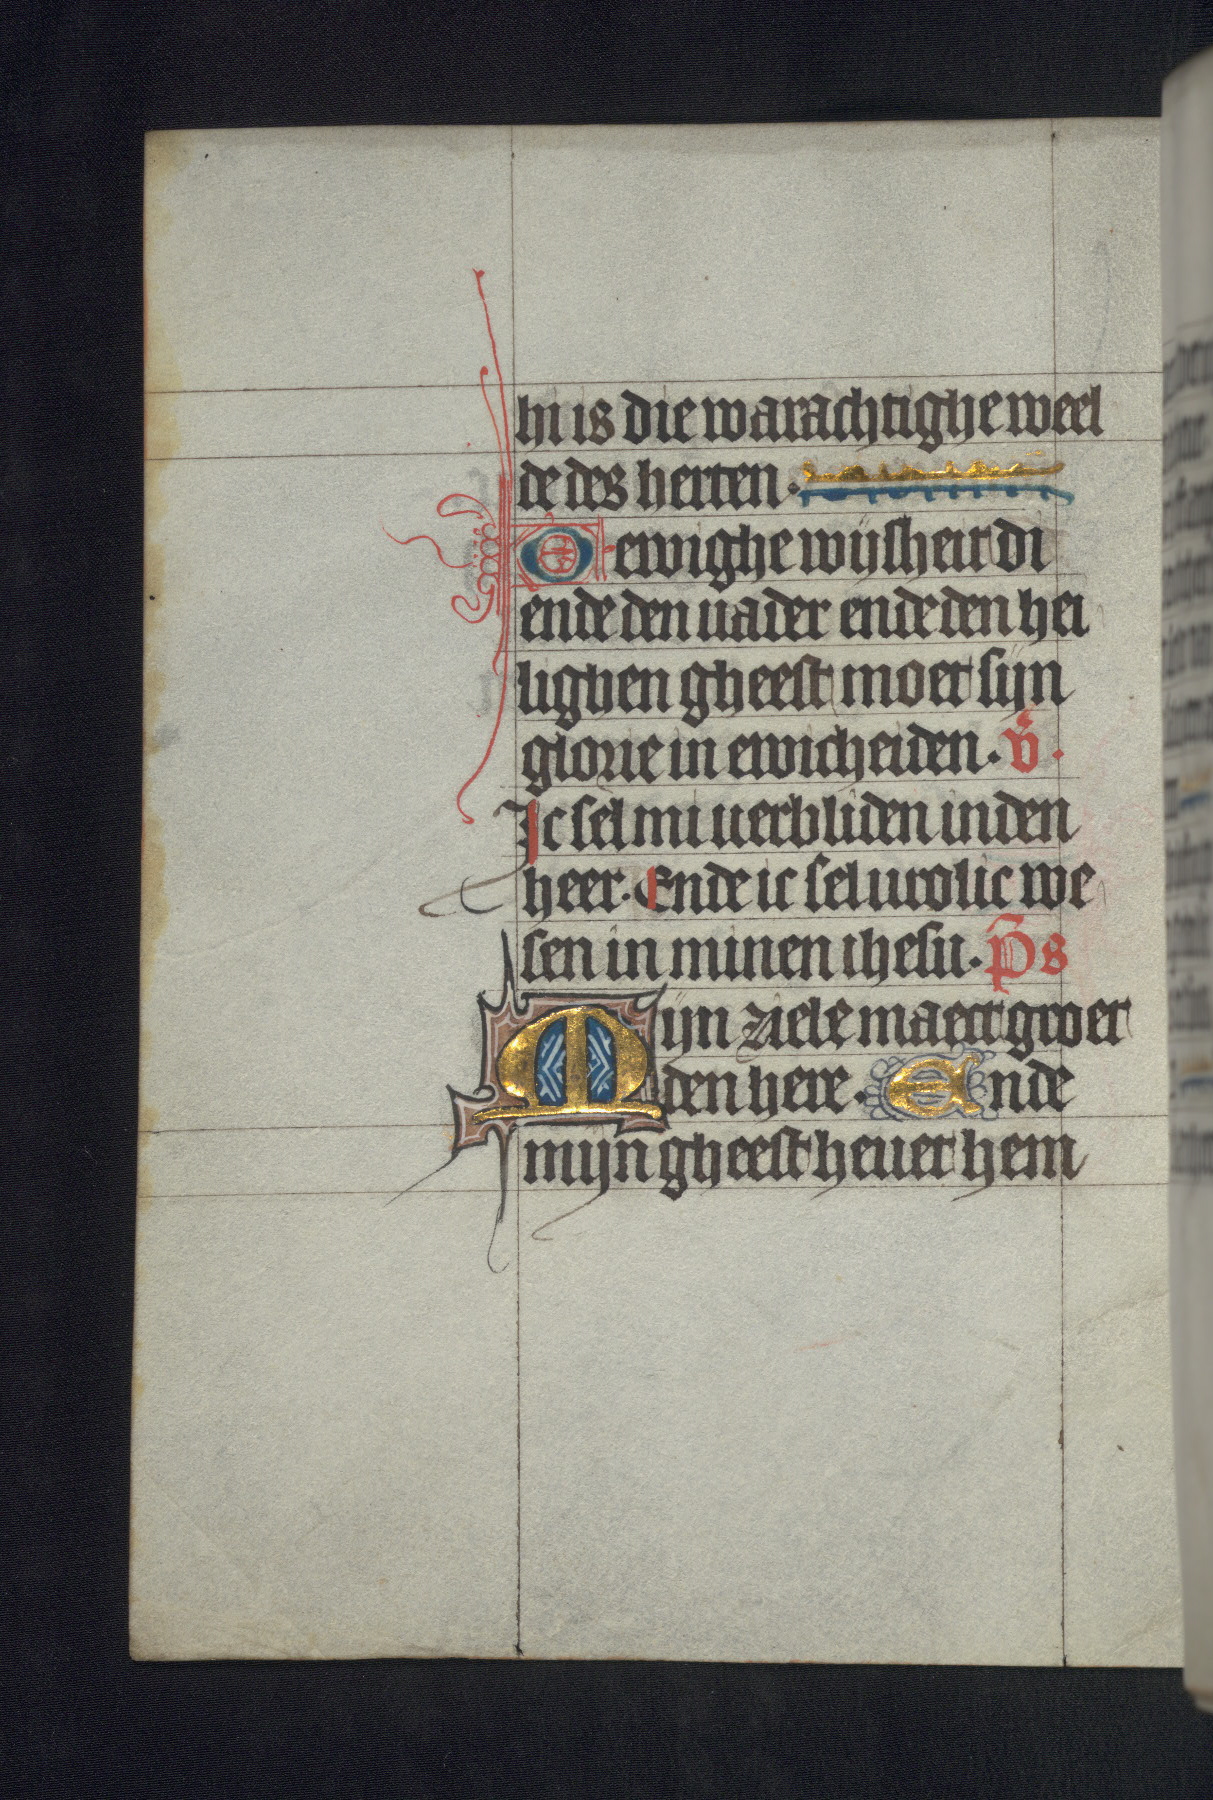 hi is die warachtighe weel
de des herten.
O ewighe wijsheit di
ende den uader ende den hei
lighen gheest moet sijn
glorie in ewicheiden. v̄.
Ic sel mi uerbliden in den
heer. Ende ic sel urolic we
sen in minen ihesu. p̄s
Mijn ziele maect groet
den here. Ende
mijn gheest heuet hem